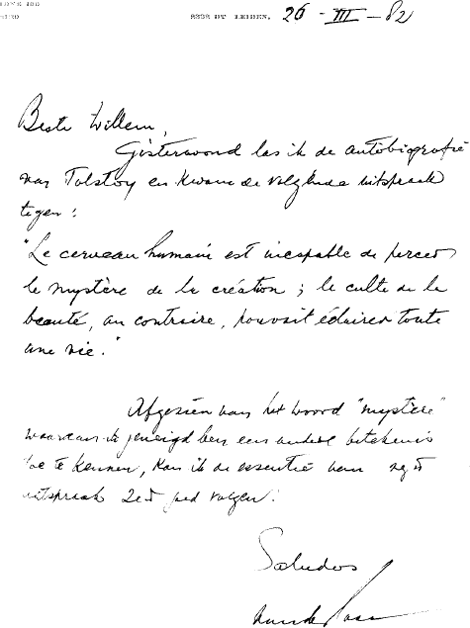 LEIDEN, 26 - III - 82
Beste Willem,
Gisteravond las ik de autobiografie
van Tolstoy en kwam de volgende uitspraak
tegen:
"Le cerveau humain est incapable de percer
le mystère de la création; le culte de la
beauté, au contraire, pouvait éclairer toute
une vie."
Afgezien van het woord "mystère"
waaraan ik geneigd ben een andere betekenis
toe te kennen, kan ik de essentie van
uitspraak zeer goed volgen.
Saludos